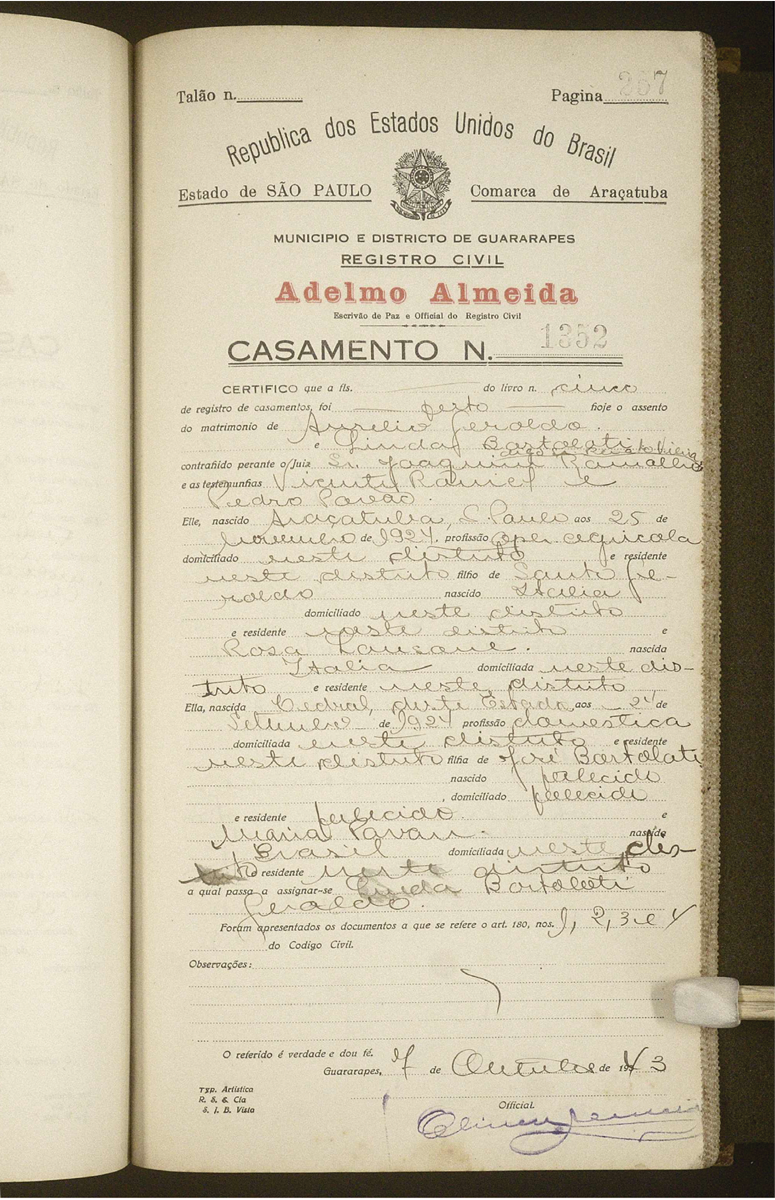 Talão n. Pagina 267
Republica dos Estados Unidos do Brasil
Estado de SÃO PAULO Comarca de Araçatuba
MUNICIPIO E DISTRICTO DE GUARARAPES
REGISTRO CIVIL
Adelmo Almeida
Escrivão de Paz e Official do Registro Civil
CASAMENTO N. 1352
CERTIFICO que a fls. do livro n. cinco
de registro de casamentos, foi feito hoje o assento
do matrimonio de Aurelio Geraldo.
e Linda Bortolati
contrahido perante o Juiz Sr. Joaquim Ramalho
e as testemunhas Vicente e
Pedro Pavão.
Elle, nascido Araçatuba, S. Paulo aos 25 de
Novembro de 1924 profissão oper. agricola
domiciliado neste distrito e residente
neste distrito filho de Santo Ge-
raldo nascido Italia
domiciliado neste distrito
e residente neste distrito e
Rosa nascida
Italia domiciliada neste dis-
trito e residente neste distrito
Ella, nascida Cedral, deste Estado aos 24 de
Setembro de 1924 profissão domestica
domiciliada neste distrito e residente
neste distrito filha de José Bortolati
nascido falecido
domiciliado falecido
e residente falecido. e
Maria Pavan. nascida
Brasil domiciliada neste dis-
trito e residente neste distrito
a qual passa a assignar-se Linda Bortolati
Geraldo.
Foram apresentados os documentos a que se refere o art. 180, nos. 1, 2, 3 e 4
do Codigo Civil.
Observações:
O referido é verdade e dou fé.
Guararapes, 7 de Outubro de 1943
Typ. Artistica
R. S. & Cia
S. J. B. Vista
Official.